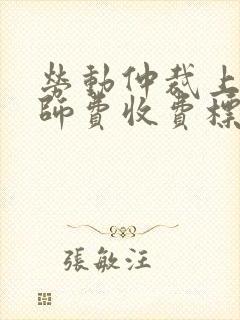 勞動仲裁上
師費收費標
張敏汪